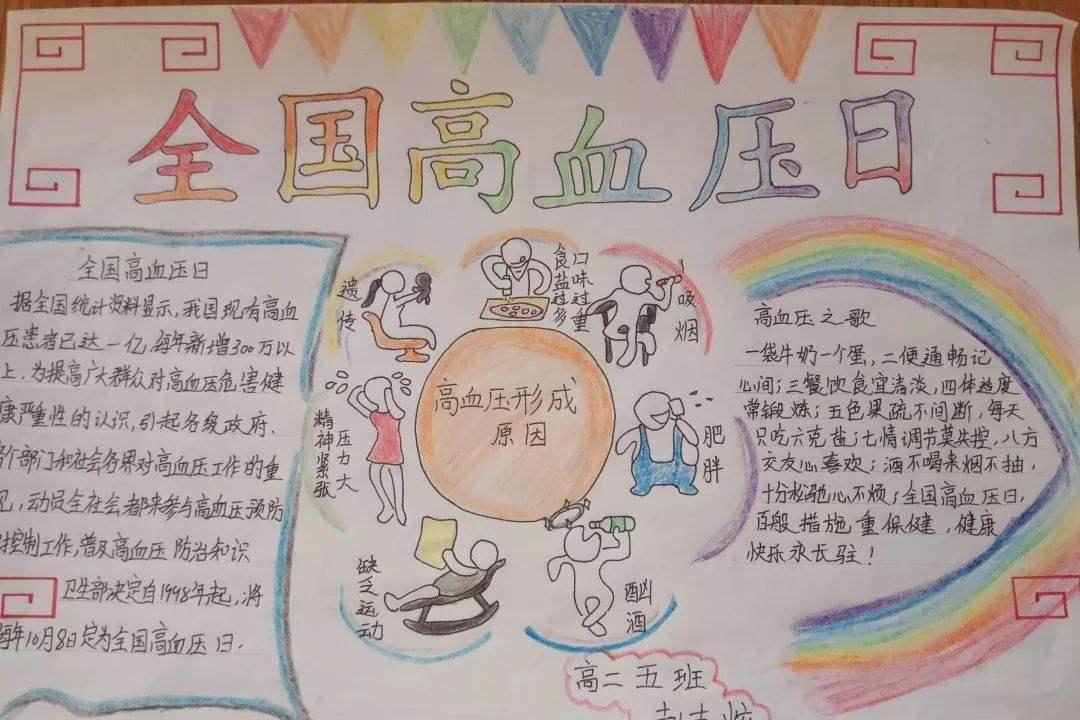 全国高血压日
全国高血压日
据全国统计资料显示,我国现有高血
压患者已达一亿,每年新增300万以
上.为提高广大群众对高血压危害健
康严重性的认识,引起各级政府.
各个部门和社会各界对高血压工作的重
视,动员全社会都来参与高血压预防
控制工作,普及高血压防治知识
卫生部决定自1998年起,将
每年10月8日定为全国高血压日.
高血压形成
原因
遗传
口味过重
食盐过多
吸烟
肥胖
酗酒
缺乏运动
压力大
精神紧张
高血压之歌
一袋牛奶一个蛋,二便通畅记
心间;三餐饮食宜清淡,四体适度
常锻炼;五色果疏不间断,每天
只吃六克盐;七情调节莫失控,八方
交友心喜欢;酒不喝来烟不抽,
十分松弛心不烦;全国高血压日,
百般措施重保健,健康
快乐永长驻!
高二五班